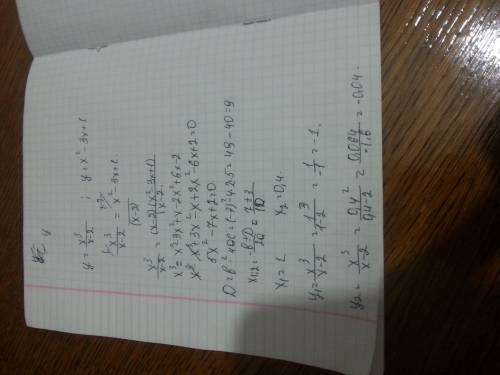 y = x³/x-2 ; y = x² - 3x + 1.
x³/x-2 = x² - 3x + 1.
(x-2)
x³/x-2 = (x-2)(x²-3x+1)/x-2
x³ = x³ - 3x² + x - 2x² + 6x - 2
x³ - x³ + 3x² - x + 2x² - 6x + 2 = 0
5x² - 7x + 2 = 0.
D = b² - 4ac = (-7)² - 4·2·5 = 49 - 40 = 9.
x1,2 = -b±D/2a = 7±3/10
x1 = 1 x2 = 0,4.
y1 = x³/x-2 = 1³/1-2 = 1/-1 = -1.
y2 = x³/x-2 = 0,4²/0,4-2 = 0,064/-1,6 = -0,04.